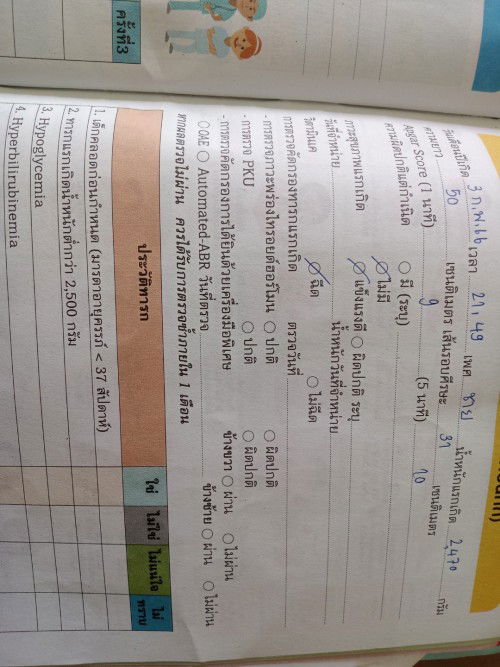 ครั้งที่3
วันเดือนปีเกิด 3 ก.พ.66 เวลา 21,49 เพศ ชาย น้ำหนักแรกเกิด 2,470 กรัม
ความยาว 50 เซนติเมตร เส้นรอบศีรษะ 31 เซนติเมตร
Apgar Score (1 นาที) 9 (5 นาที) 10
ความผิดปกติแต่กำเนิด ไม่มี มี (ระบุ)
ภาวะสุขภาพแรกเกิด แข็งแรงดี ผิดปกติ ระบุ
วันที่จำหน่าย น้ำหนักวันที่จำหน่าย
วิตามินเค ฉีด ไม่ฉีด
การตรวจคัดกรองทารกแรกเกิด ตรวจวันที่
- การตรวจภาวะพร่องไทรอยด์ฮอร์โมน ปกติ ผิดปกติ
- การตรวจ PKU ปกติ ผิดปกติ
- การตรวจคัดกรองการได้ยินด้วยเครื่องมือพิเศษ ข้างขวา ผ่าน ไม่ผ่าน
OAE Automated-ABR วันที่ตรวจ ข้างซ้าย ผ่าน ไม่ผ่าน
หากผลตรวจไม่ผ่าน ควรได้รับการตรวจซ้ำภายใน 1 เดือน
ประวัติทารก ใช่ ไม่ใช่ ไม่แน่ใจ ไม่ทราบ
1. เด็กคลอดก่อนกำหนด (มารดาอายุครรภ์ < 37 สัปดาห์)
2. ทารกแรกเกิดน้ำหนักต่ำกว่า 2,500 กรัม
3. Hypoglycemia
4. Hyperbilirubinemia